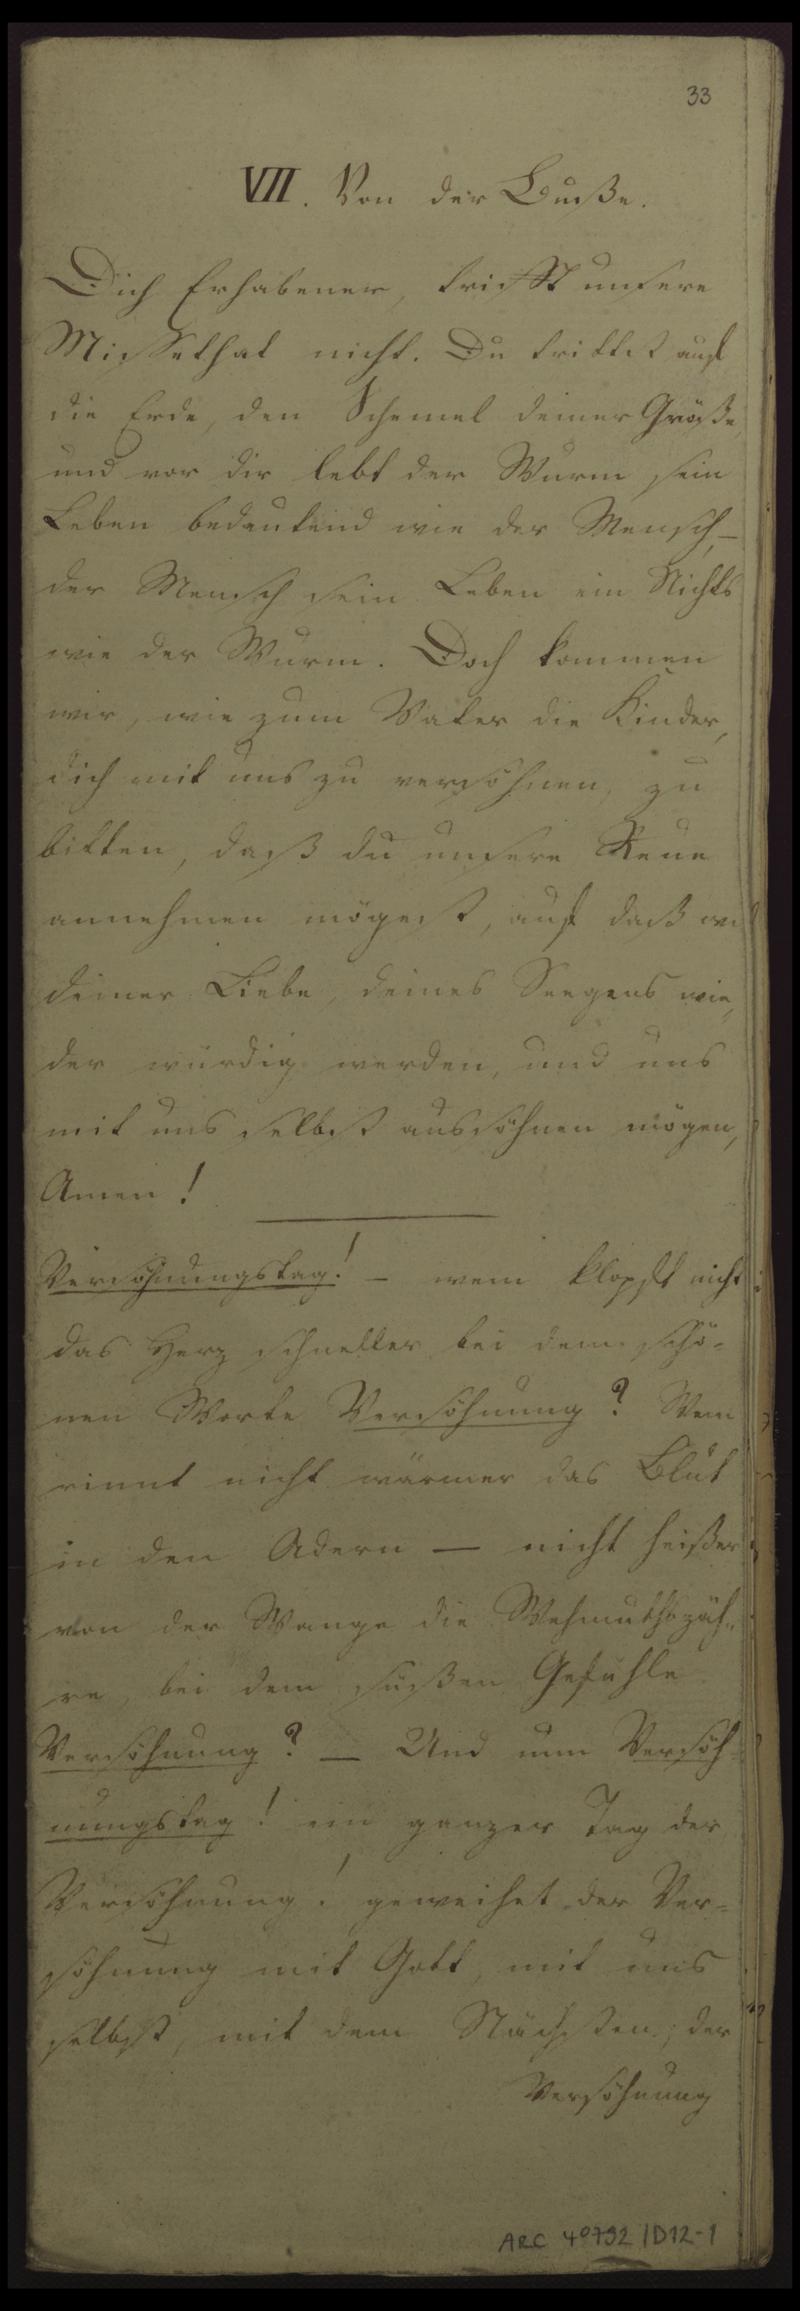 33
VII. Von der Buße.
Dich Erhabener, trifft unsere
Missethat nicht. Du trittst auf
die Erde, den Schemel deiner Größe,
und vor dir lebt der Wurm sein
Leben bedeutend wie der Mensch, –
der Mensch sein Leben ein Nichts
wie der Wurm. Doch kommen
wir, wie zum Vater die Kinder,
dich mit uns zu versöhnen, zu
bitten, daß du unsere Reue
annehmen mögest, auf daß wir
deiner Liebe, deines Seegens wie„
der würdig werden, und uns
mit uns selbst aussöhnen mögen,
Amen!
Versöhnungstag! – wem klopft nicht
das Herz schneller bei dem schö-
nen Worte Versöhnung? Wem
rinnt nicht wärmer das Blut
in den Adern — nicht heißer
von der Wange die Wehmuthszäh„
re, bei dem süßen Gefühle
Versöhnung? — Und nun Versöh-
nungstag! ein ganzer Tag der
Versöhnung! geweihet der Ver=
söhnung mit Gott, mit uns
selbst, mit dem Nächsten; der
Versöhnung
ARC 4°792 /D12-1